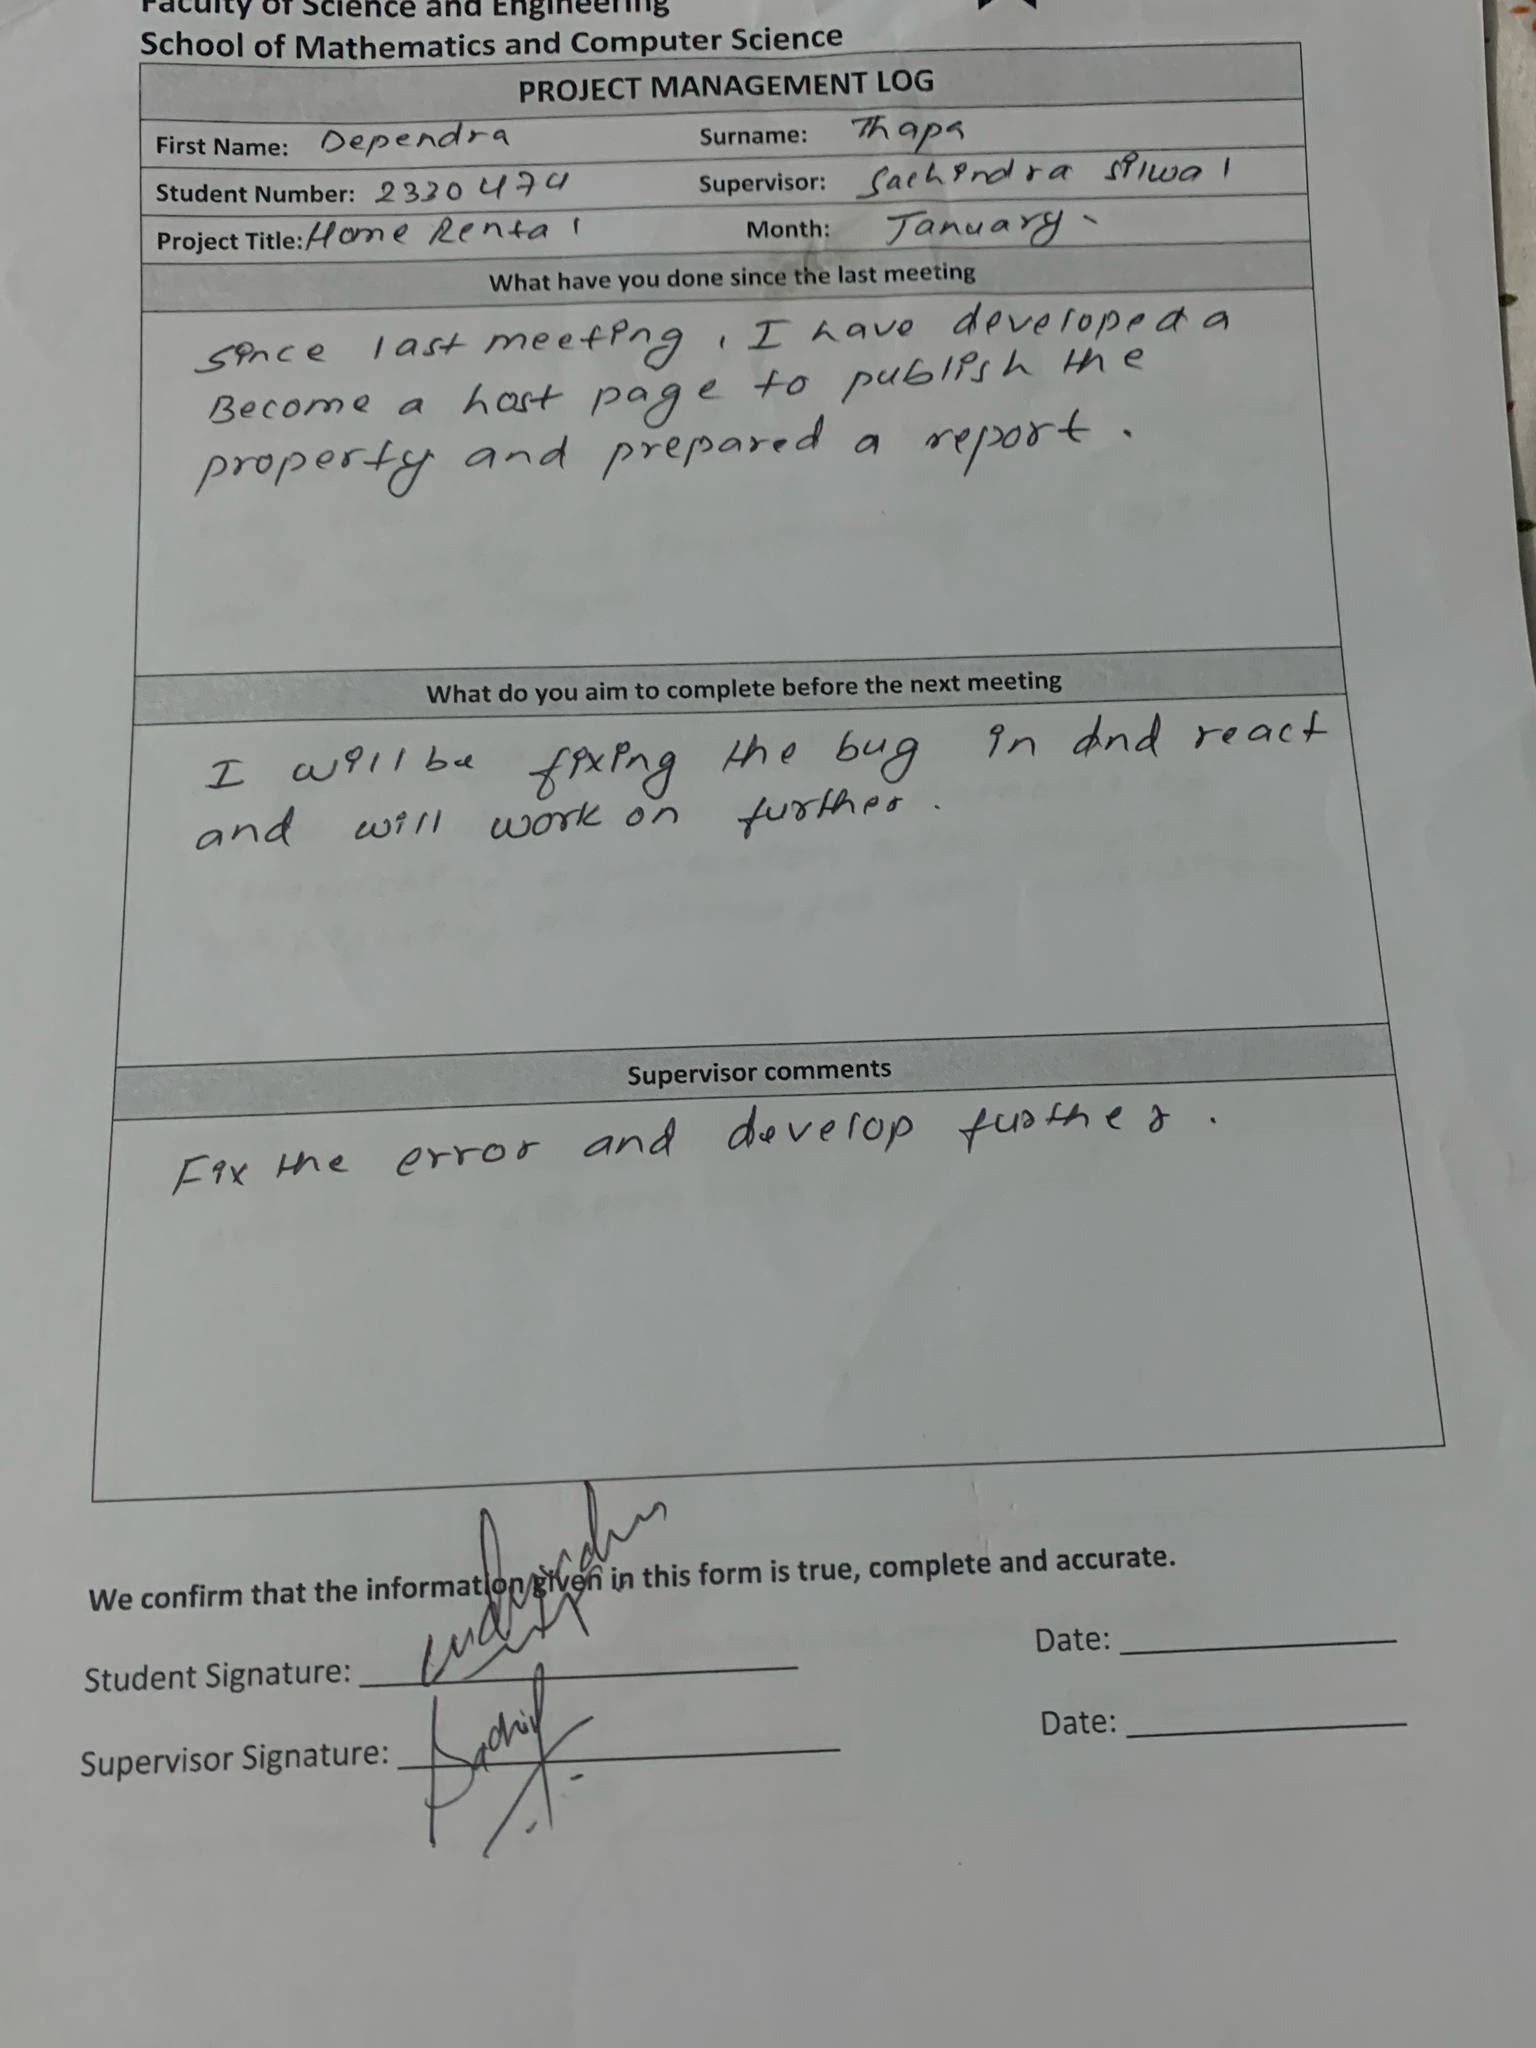 Faculty of Science and Engineering
School of Mathematics and Computer Science
PROJECT MANAGEMENT LOG
First Name: Dependra Surname: Thapa
Student Number: 2330474 Supervisor: Sachindra Silwal
Project Title: Home Rental Month: January
What have you done since the last meeting
since last meeting, I have developed a
Become a host page to publish the
property and prepared a report.
What do you aim to complete before the next meeting
I will be fixing the bug in dnd react
and will work on further.
Supervisor comments
Fix the error and develop further.
We confirm that the information given in this form is true, complete and accurate.
Student Signature: Date:
Supervisor Signature: Date: